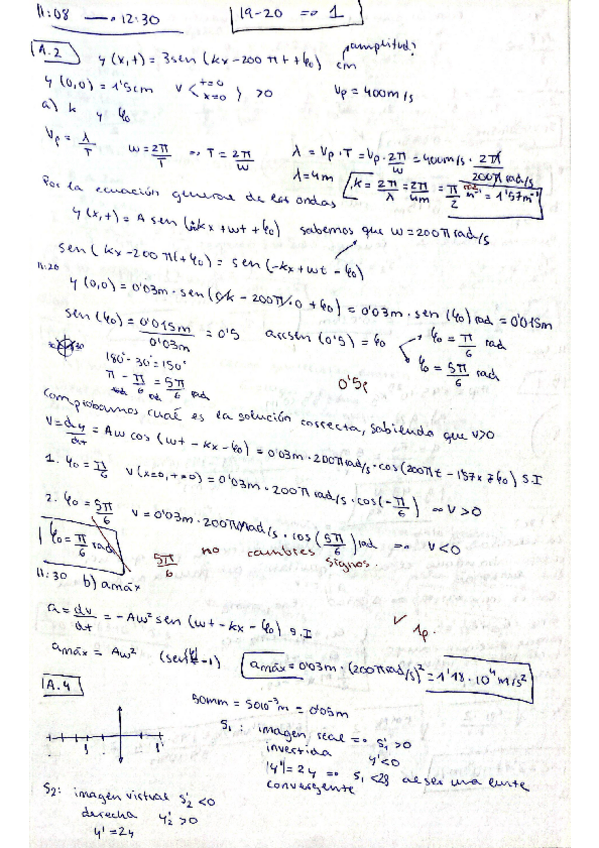 11:08 → 12:30 19-20 => 1
A.2 y(x,t) = 3sen(kx-200πt+φ0) cm ¿amplitud?
y(0,0) = 1'5cm v < t=0 x=0 } >0 Vp = 400m/s
a) k y φ0
Vp = λ/T w = 2π/T => T = 2π/w λ = Vp·T = Vp·2π/w = 400m/s · 2π/200π rad/s
λ = 4m k = 2π/λ = 2π/4m = π/2 rad m⁻¹ = 1'57m⁻¹
Por la ecuación general de las ondas
y(x,t) = A sen(±kx+wt+φ0) sabemos que w = 200π rad/s
sen(kx-200πt+φ0) = sen(-kx+wt-φ0)
11:20
y(0,0) = 0'03m·sen(0k-200π·0+φ0) = 0'03m·sen(φ0) rad = 0'015m
sen(φ0) = 0'015m/0'03m = 0'5 arcsen(0'5) = φ0 φ0 = π/6 rad
φ0 = 5π/6 rad
180°-30°=150°
π - π/6 = 5π/6 rad
0'5p
Comprobamos cuál es la solución correcta, sabiendo que v>0
v = dy/dt = Aw cos(wt-kx-φ0) = 0'03m·200π rad/s·cos(200πt-1'57x-φ0) S.I
1. φ0 = π/6 v(x=0,t=0) = 0'03m·200π rad/s·cos(-π/6) => v>0
2. φ0 = 5π/6 v = 0'03m·200π rad/s·cos(5π/6) rad => v<0
φ0 = π/6 rad 5π/6 no cambies signos.
11:30 b) amáx
a = dv/dt = -Aw² sen(wt-kx-φ0) S.I ✓ 1p.
amáx = Aw² amáx = 0'03m·(200π rad/s)² = 1'18·10⁴ m/s²
A.4
50mm = 50·10⁻³m = 0'05m
S1: imagen real => s'1 >0
invertida y'<0
|y'| = 2y => s1 <2f al ser una lente
convergente
S2: imagen virtual s'2 <0
derecha y'2 >0
y' = 2y